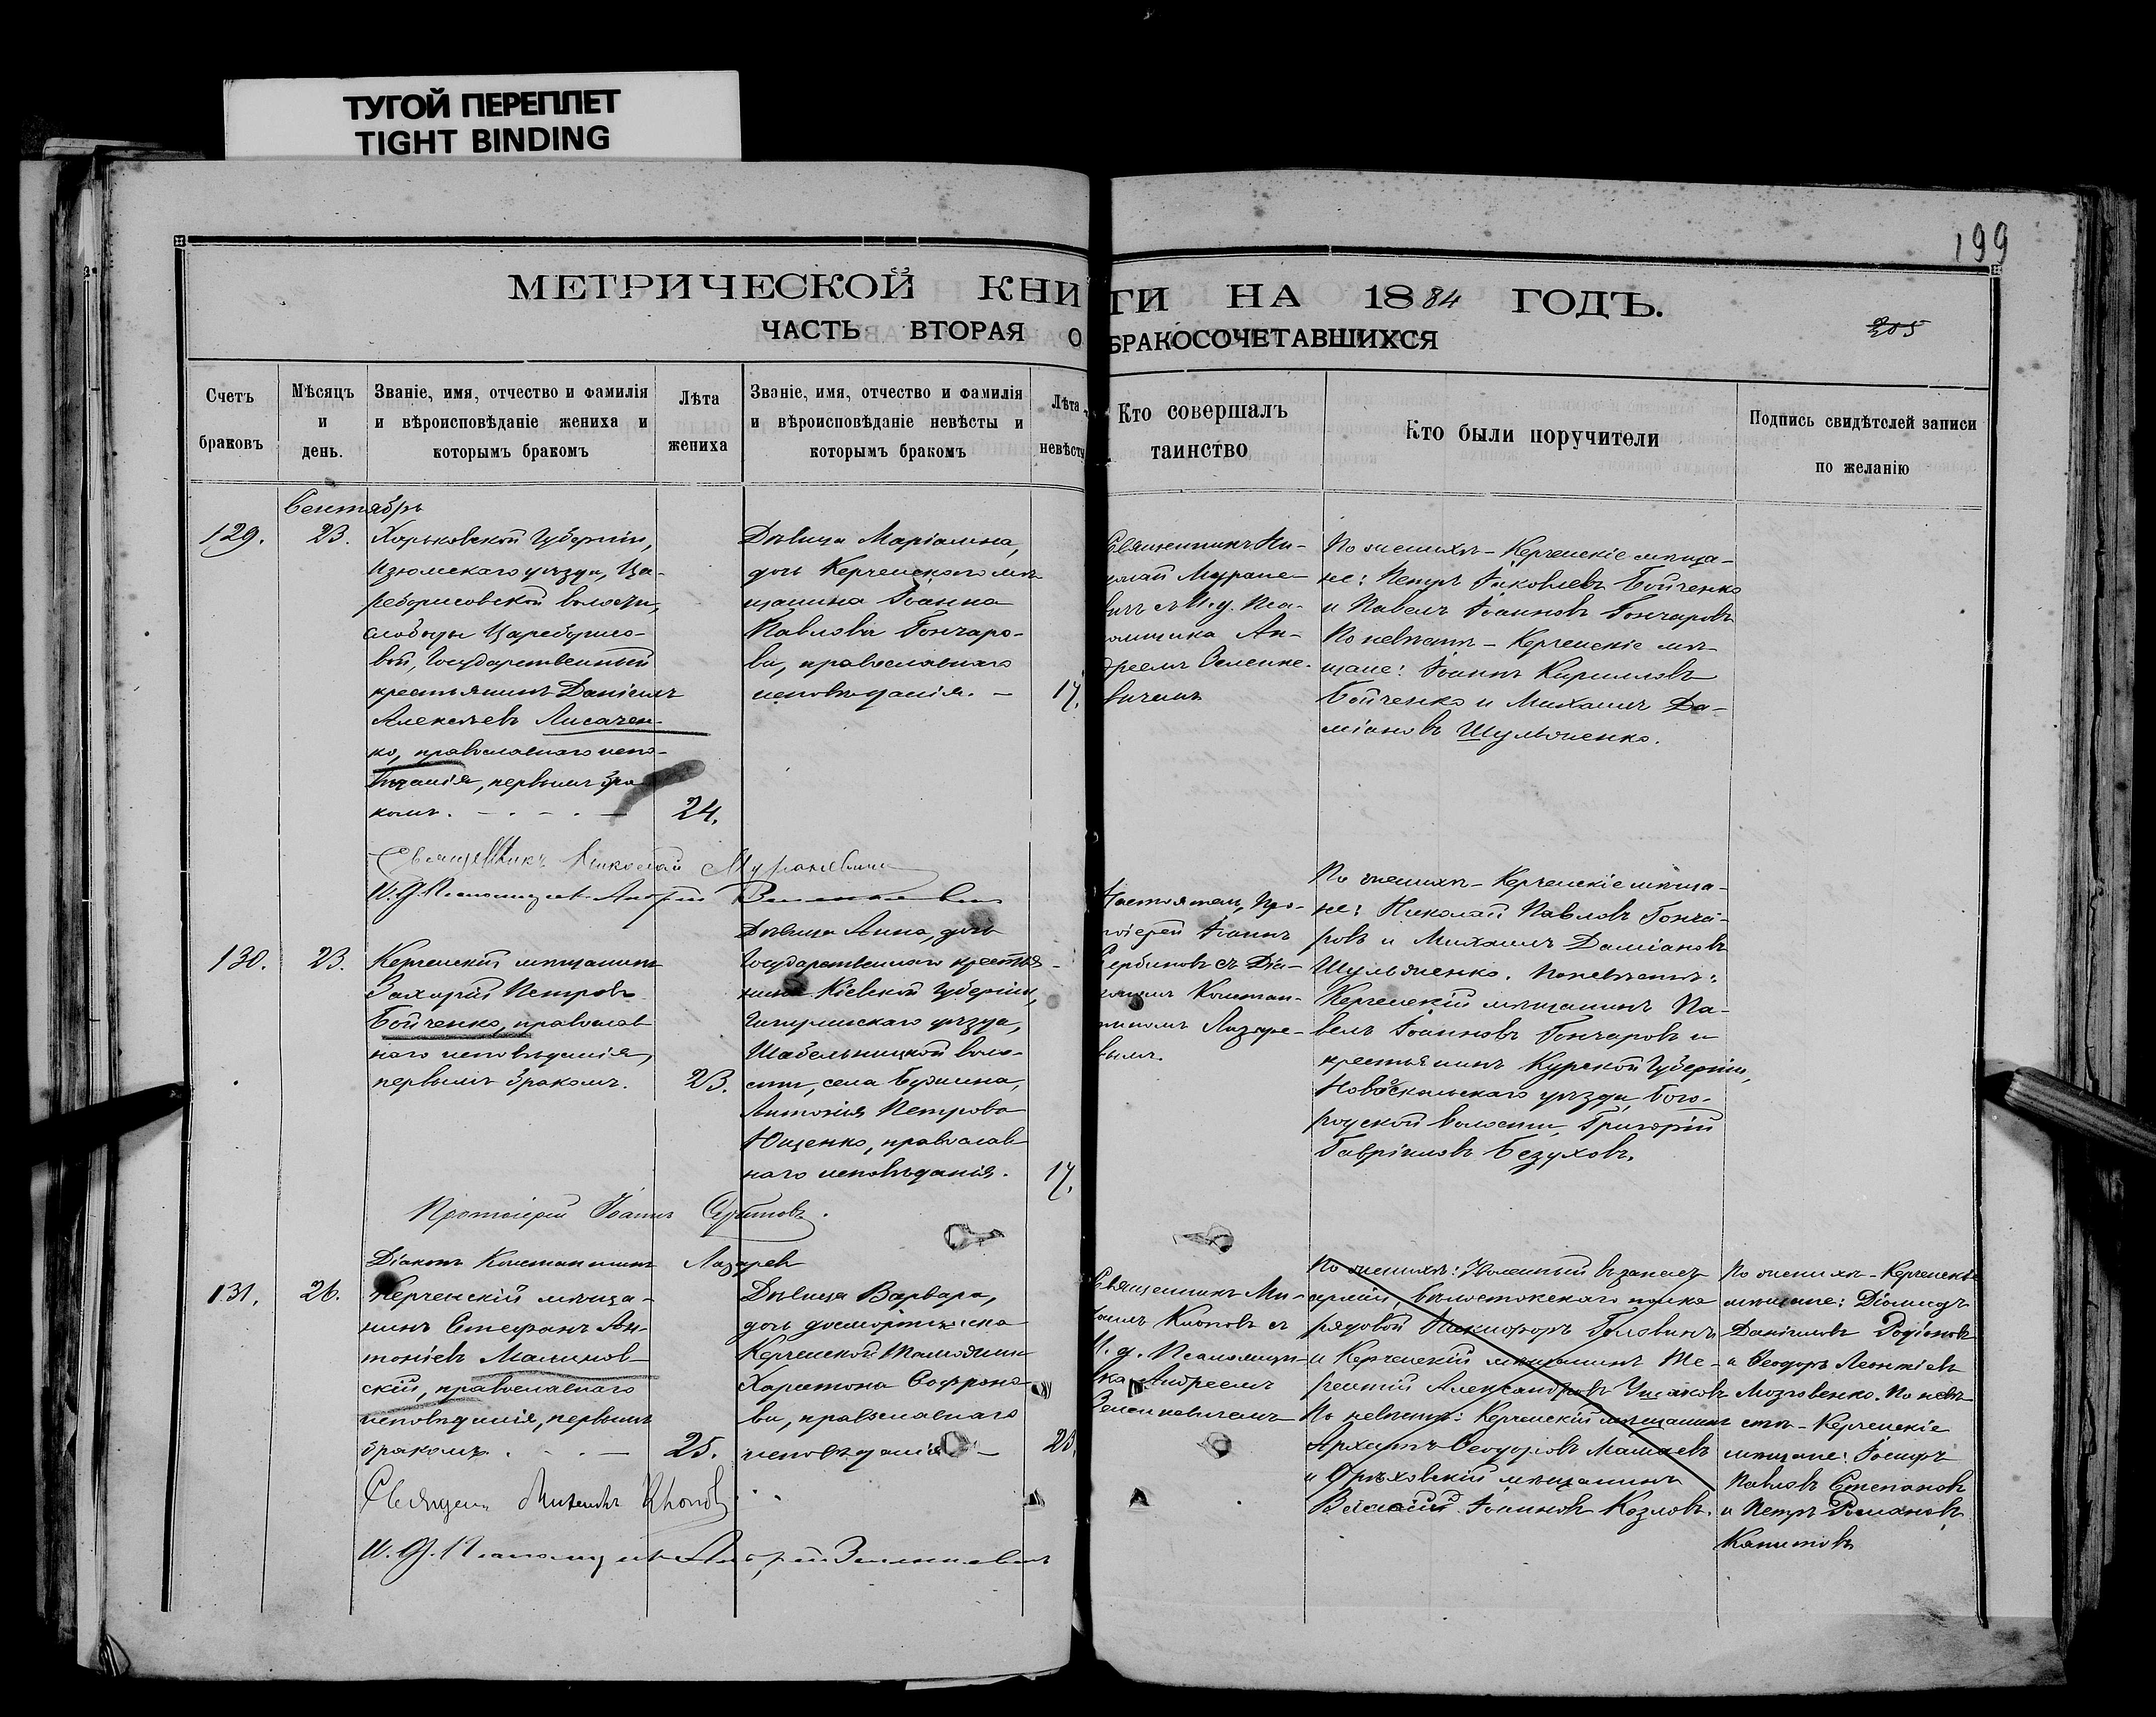 ТУГОЙ ПЕРЕПЛЕТ
TIGHT BINDING
199
МЕТРИЧЕСКОЙ КНИГИ НА 1884 ГОДЪ.
ЧАСТЬ ВТОРАЯ О БРАКОСОЧЕТАВШИХСЯ
205
Счетъ
браковъ
Мѣсяцъ
и
день.
Званіе, имя, отчество и фамилія
и вѣроисповѣданіе жениха и
которымъ бракомъ
Лѣта
жениха
Званіе, имя, отчество и фамилія
и вѣроисповѣданіе невѣсты и
которымъ бракомъ
Лѣта
невѣсты
Кто совершалъ
таинство
Кто были поручители
Подпись свидѣтелей записи
по желанію
Сентябрь
129.
23.
Харьковской Губерніи,
Изюмскаго уѣзда, Ца-
реборисовской волости,
слободы Цареборисо-
вой, Государственный
крестьянинъ Даніилъ
Алексѣевъ Лисачен-
ко, православнаго испо-
вѣданія, первымъ бра-
комъ.
24.
Дѣвица Маріамна,
дочь Керченскаго мѣ-
щанина Іоанна
Павлова Гончаро-
ва, православнаго
исповѣданія.
17.
Священникъ Ни-
колай Муране-
вичъ съ И. д. Пса-
ломщика Ан-
дреемъ Зеленке-
вичемъ
По женихѣ - Керченскіе мѣща-
не: Петръ Іаковлевъ Бойченко
и Павелъ Іоанновъ Гончаровъ
По невѣстѣ - Керченскіе мѣ-
щане: Іоаннъ Кирилловъ
Бойченко и Михаилъ Да-
міановъ Шульженко.
Священникъ Николай Мураневичъ
И. д. Псаломщика Андрей Зеленкевичъ
130.
23.
Керченскій мѣщанинъ
Захарій Петровъ
Бойченко, православ-
наго исповѣданія,
первымъ бракомъ.
23.
Дѣвица Анна, дочь
Государственнаго крестья-
нина Кіевской Губерніи,
Чигиринскаго уѣзда,
Шабельницкой воло-
сти, села Бужина,
Антонія Петрова
Ющенко, православ-
наго исповѣданія.
17.
Настоятель, Про-
тоіерей Іоаннъ
Сербиновъ съ Діа-
кономъ Констан-
тиномъ Лазаре-
вымъ.
По женихѣ - Керченскіе мѣща-
не: Николай Павловъ Гонча-
ровъ и Михаилъ Даміановъ
Шульженко. По невѣстѣ:
Керченскій мѣщанинъ Па-
велъ Іоанновъ Гончаровъ и
крестьянинъ Курской Губерніи,
Новооскольскаго уѣзда, Бого-
родской волости, Григорій
Гавріиловъ Безуховъ.
Протоіерей Іоаннъ Сербиновъ.
Діаконъ Константинъ Лазаревъ
131.
26.
Керченскій мѣща-
нинъ Стефанъ Ан-
тоніевъ Малинов-
скій, православнаго
исповѣданія, первымъ
бракомъ.
25.
Дѣвица Варвара,
дочь досмотрщика
Керченской Таможни
Харитона Софроно-
ва, православнаго
исповѣданія
Священникъ Ми-
хаилъ Клоповъ съ
И. д. Псаломщи-
ка Андреемъ
Зеленкевичемъ
По женихѣ: Уволенный въ запасъ
арміи, Бѣлостокскаго полка
рядовой Никифоръ Головинъ
и Керченскій мѣщанинъ Те-
рентій Александровъ Ушаковъ
По невѣстѣ: Керченскій мѣщанинъ
Архипъ Ѳеодоровъ Мамаевъ
и Орѣховскій мѣщанинъ
Василій Іоанновъ Козловъ.
По женихѣ - Керченскіе
мѣщане: Діомидъ
Даніиловъ Родіоновъ
и Ѳеодоръ Леонтіевъ
Мозговенко. По невѣ-
стѣ - Керченскіе
мѣщане: Іосифъ
Павловъ Степановъ
и Петръ Романовъ
Капитовъ
Священ. Михаилъ Клоповъ
И. д. Псаломщика Андрей Зеленкевичъ